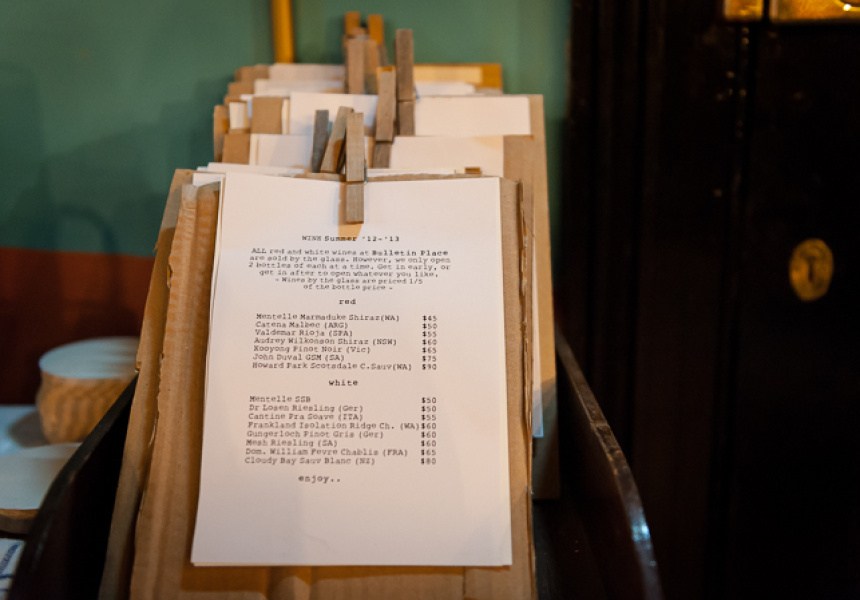 WINE Summer '12-'13
ALL red and white wines at Bulletin Place
are sold by the glass. However, we only open
2 bottles of each at a time. Get in early, or
get in after to open whatever you like.
- Wines by the glass are priced 1/5
of the bottle price -
red
Mentelle Marmaduke Shiraz(WA) $45
Catena Malbec (ARG) $50
Valdemar Rioja (SPA) $55
Audrey Wilkonson Shiraz (NSW) $60
Kooyong Pinot Noir (Vic) $65
John Duval GSM (SA) $75
Howard Park Scotsdale C.Sauv(WA) $90
white
Mentelle SSB $50
Dr Losen Riesling (Ger) $50
Cantine Pra Soave (ITA) $55
Frankland Isolation Ridge Ch. (WA)$60
Gungerloch Pinot Gris (Ger) $60
Mesh Riesling (SA) $60
Dom. William Fevre Chablis (FRA) $65
Cloudy Bay Sauv Blanc (NZ) $80
enjoy..